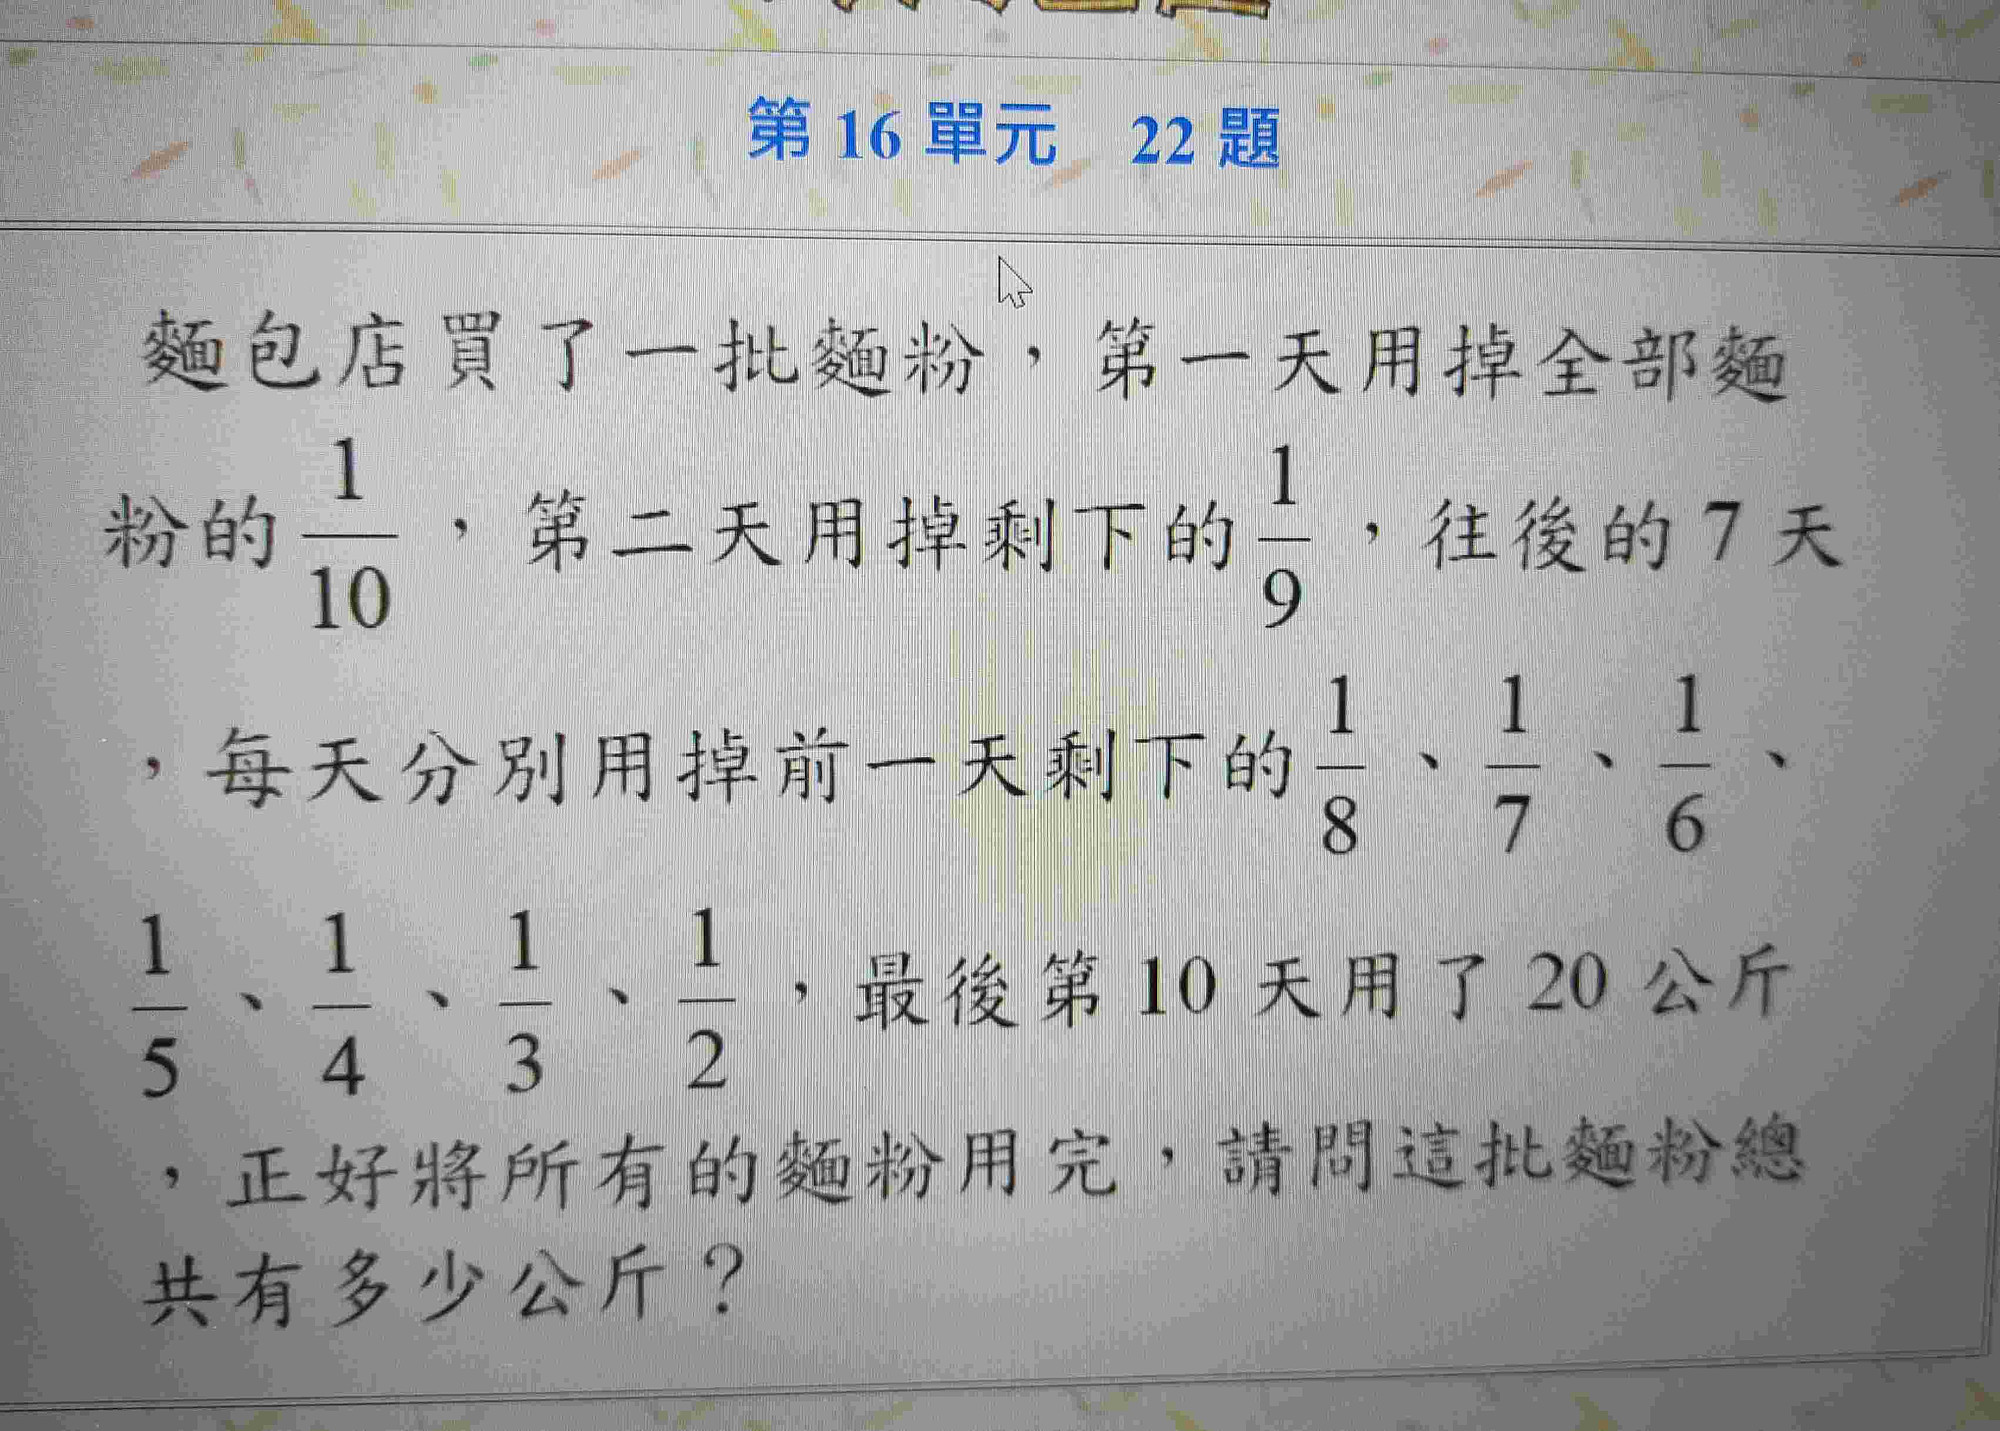 第 16 單元 22 題
麵包店買了一批麵粉，第一天用掉全部麵
粉的 1/10 ，第二天用掉剩下的 1/9 ，往後的 7 天
，每天分別用掉前一天剩下的 1/8 、 1/7 、 1/6 、
1/5 、 1/4 、 1/3 、 1/2 ，最後第 10 天用了 20 公斤
，正好將所有的麵粉用完，請問這批麵粉總
共有多少公斤？